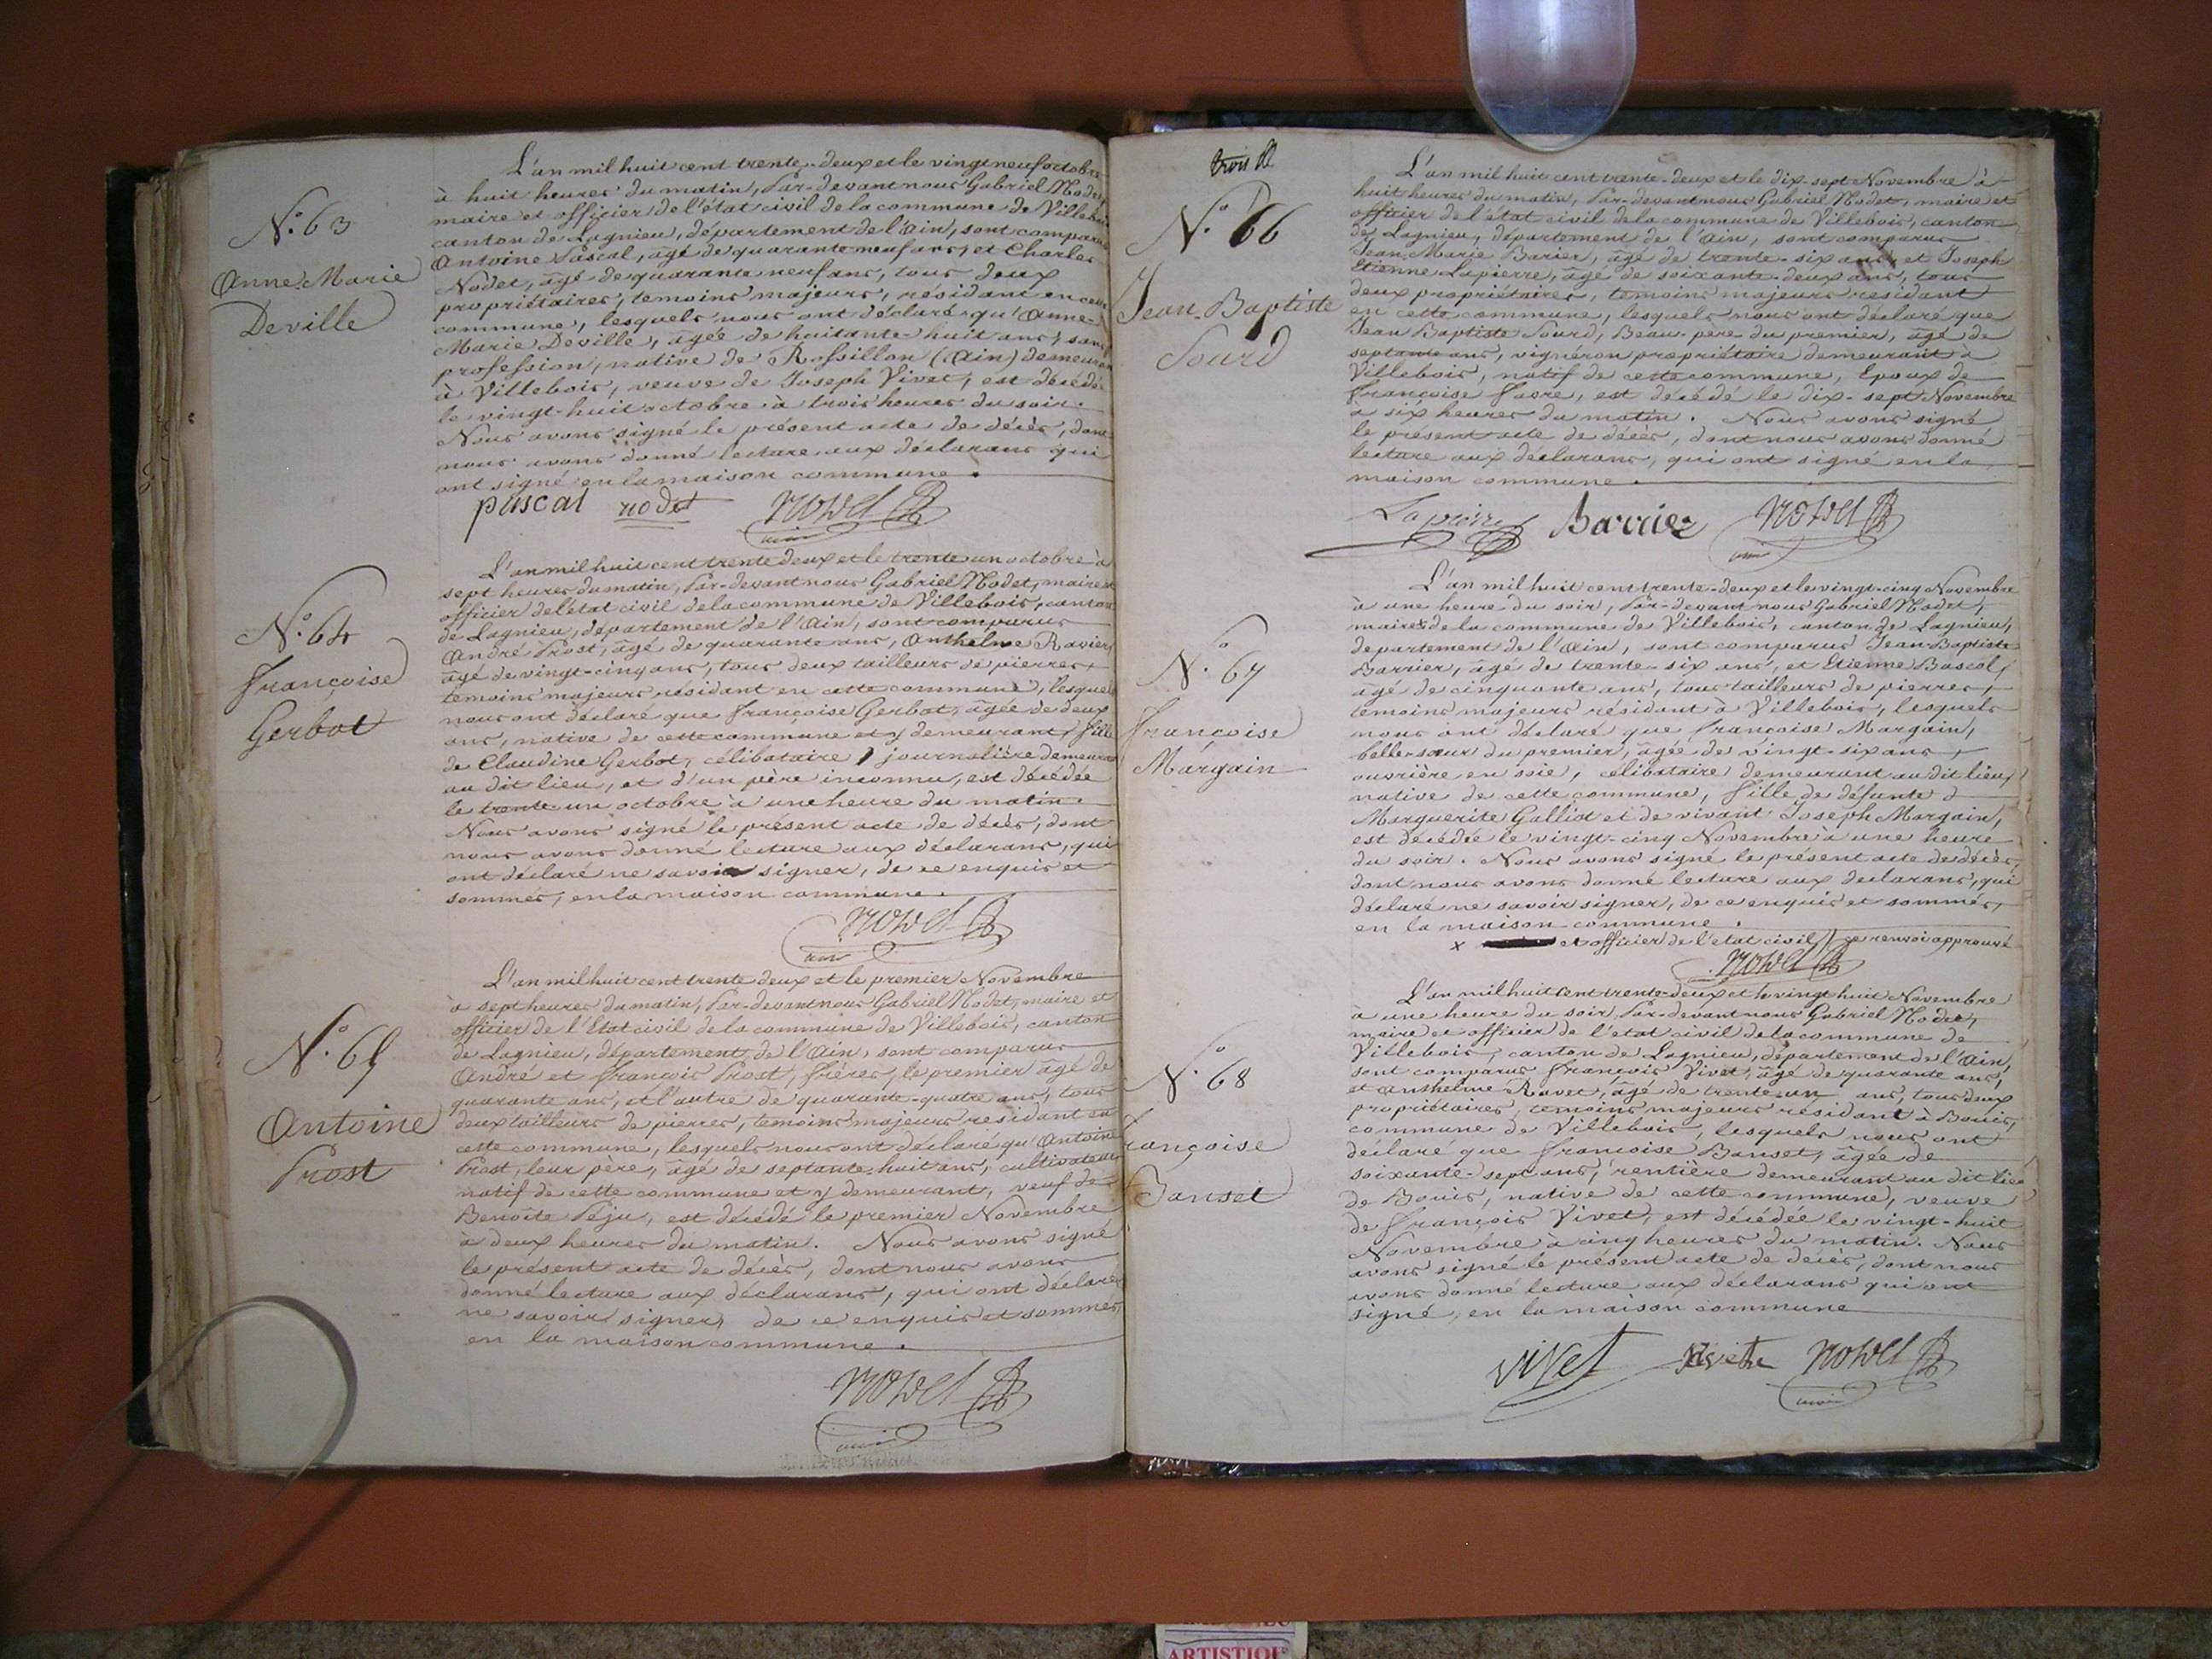 N.° 63
Anne-Marie
Deville
L'an mil huit cent trente-deux et le vingt neuf octobre
à huit heures du matin, Par-devant nous Gabriel Nodet
maire et officier de l'état civil de la commune de Villebois
canton de Lagnieu, département de l'Ain, sont comparus
Antoine Pascal, âgé de quarante neuf ans, et Charles
Nodet, âgé de quarante neuf ans, tous deux
propriétaires, temoins majeurs, résidant en cette
commune, lesquels nous ont déclaré qu'Anne-
Marie Deville, âgée de huitante-huit ans, sans
profession, native de Rossillon (Ain) demeurant
à Villebois, veuve de Joseph Vivet, est décédée
le vingt-huit octobre à trois heures du soir.
Nous avons signé le présent acte de décès, dont
nous avons donné lecture aux déclarans qui
ont signé en la maison commune.
pascal nodet Nodet
maire
N.° 64
Françoise
Gerbot
L'an mil huit cent trente deux et le trente un octobre à
sept heures du matin, Par-devant nous Gabriel Nodet, maire et
officier de l'état civil de la commune de Villebois, canton
de Lagnieu, département de l'Ain, sont comparus
André Prost, âgé de quarante ans, Anthelme Ravier
âgé de vingt-cinq ans, tous deux tailleurs de pierres,
temoins majeurs résidant en cette commune, lesquels
nous ont déclaré que Françoise Gerbot, âgée de deux
ans, native de cette commune et y demeurant, fille
de Claudine Gerbot, célibataire, journalière demeurant
au dit lieu, et d'un père inconnu, est décédée
le trente un octobre à une heure du matin.
Nous avons signé le présent acte de décès, dont
nous avons donné lecture aux déclarans, qui
ont déclaré ne savoir signer, de ce enquis et
sommés, en la maison commune.
Nodet
maire
N.° 65
Antoine
Prost
L'an mil huit cent trente deux et le premier Novembre
à sept heures du matin, Par-devant nous Gabriel Nodet, maire et
officier de l'Etat civil de la commune de Villebois, canton
de Lagnieu, département de l'Ain, sont comparus
André et François Prost, frères, le premier âgé de
quarante ans, et l'autre de quarante-quatre ans, tous
deux tailleurs de pierres, temoins majeurs residant en
cette commune, lesquels nous ont déclaré qu'Antoine
Prost, leur père, âgé de septante-huit ans, cultivateur
natif de cette commune et y demeurant, veuf de
Benoîte Péju, est décédé le premier Novembre
à deux heures du matin. Nous avons signé
le présent acte de décès, dont nous avons
donné lecture aux déclarans, qui ont déclaré
ne savoir signer, de ce enquis et sommés,
en la maison commune.
Nodet
maire
trois
N.° 66
Jean-Baptiste
Sourd
L'an mil huit cent trente-deux et le dix-sept Novembre à
huit heures du matin, Par-devant nous Gabriel Nodet, maire et
officier de l'état civil de la commune de Villebois, canton
de Lagnieu, département de l'Ain, sont comparus
Jean-Marie Barier, âgé de trente-six ans, et Joseph
Etienne Lapierre, âgé de soixante-deux ans, tous
deux propriétaires, temoins majeurs residant
en cette commune, lesquels nous ont déclaré que
Jean Baptiste Sourd, Beau-père du premier, âgé de
septante ans, vigneron propriétaire demeurant à
Villebois, natif de cette commune, Epoux de
Françoise Favre, est décédé le dix-sept Novembre
à six heures du matin. Nous avons signé
le présent acte de décès, dont nous avons donné
lecture aux déclarans, qui ont signé en la
maison commune.
Lapierre Barrier Nodet
maire
N.° 67
Françoise
Margain
L'an mil huit cent trente-deux et le vingt-cinq Novembre
à une heure du soir, Par-devant nous Gabriel Nodet,
maire x de la commune de Villebois, canton de Lagnieu,
departement de l'Ain, sont comparus Jean Baptiste
Barrier, âgé de trente-six ans, et Etienne Bascol,
agé de cinquante ans, tous tailleurs de pierres,
temoins majeurs résidant à Villebois, lesquels
nous ont déclaré que Françoise Margain,
belle-sœur du premier, âgée de vingt-six ans,
ouvrière en soie, célibataire demeurant au dit lieu,
native de cette commune, fille de défunte
Marguerite Galliot et de vivant Joseph Margain,
est décédée le vingt-cinq Novembre à une heure
du soir. Nous avons signé le présent acte de décès,
dont nous avons donné lecture aux declarans, qui
déclaré ne savoir signer, de ce enquis et sommés,
en la maison commune.
x et officier de l'etat civil ce renvoi approuvé
Nodet
N.° 68
Françoise
Banset
L'an mil huit cent trente-deux et le vingt huit Novembre
à une heure du soir, Par-devant nous Gabriel Nodet,
maire et officier de l'etat civil de la commune de
Villebois, canton de Lagnieu, département de l'Ain,
sont comparus François Vivet, âgé de quarante ans,
et Anthelme Ravet, âgé de trente un ans, tous deux
propriétaires, temoins majeurs résidant à Bouis,
commune de Villebois, lesquels nous ont
déclaré que Françoise Banset, âgée de
soixante-sept ans, rentière demeurant au dit lieu
de Bouis, native de cette commune, veuve
de François Vivet, est décédée le vingt-huit
Novembre à cinq heures du matin. Nous
avons signé le présent acte de décès, dont nous
avons donné lecture aux déclarans qui ont
signé, en la maison commune
vivet Nodet
maire
ARTISTIQUE